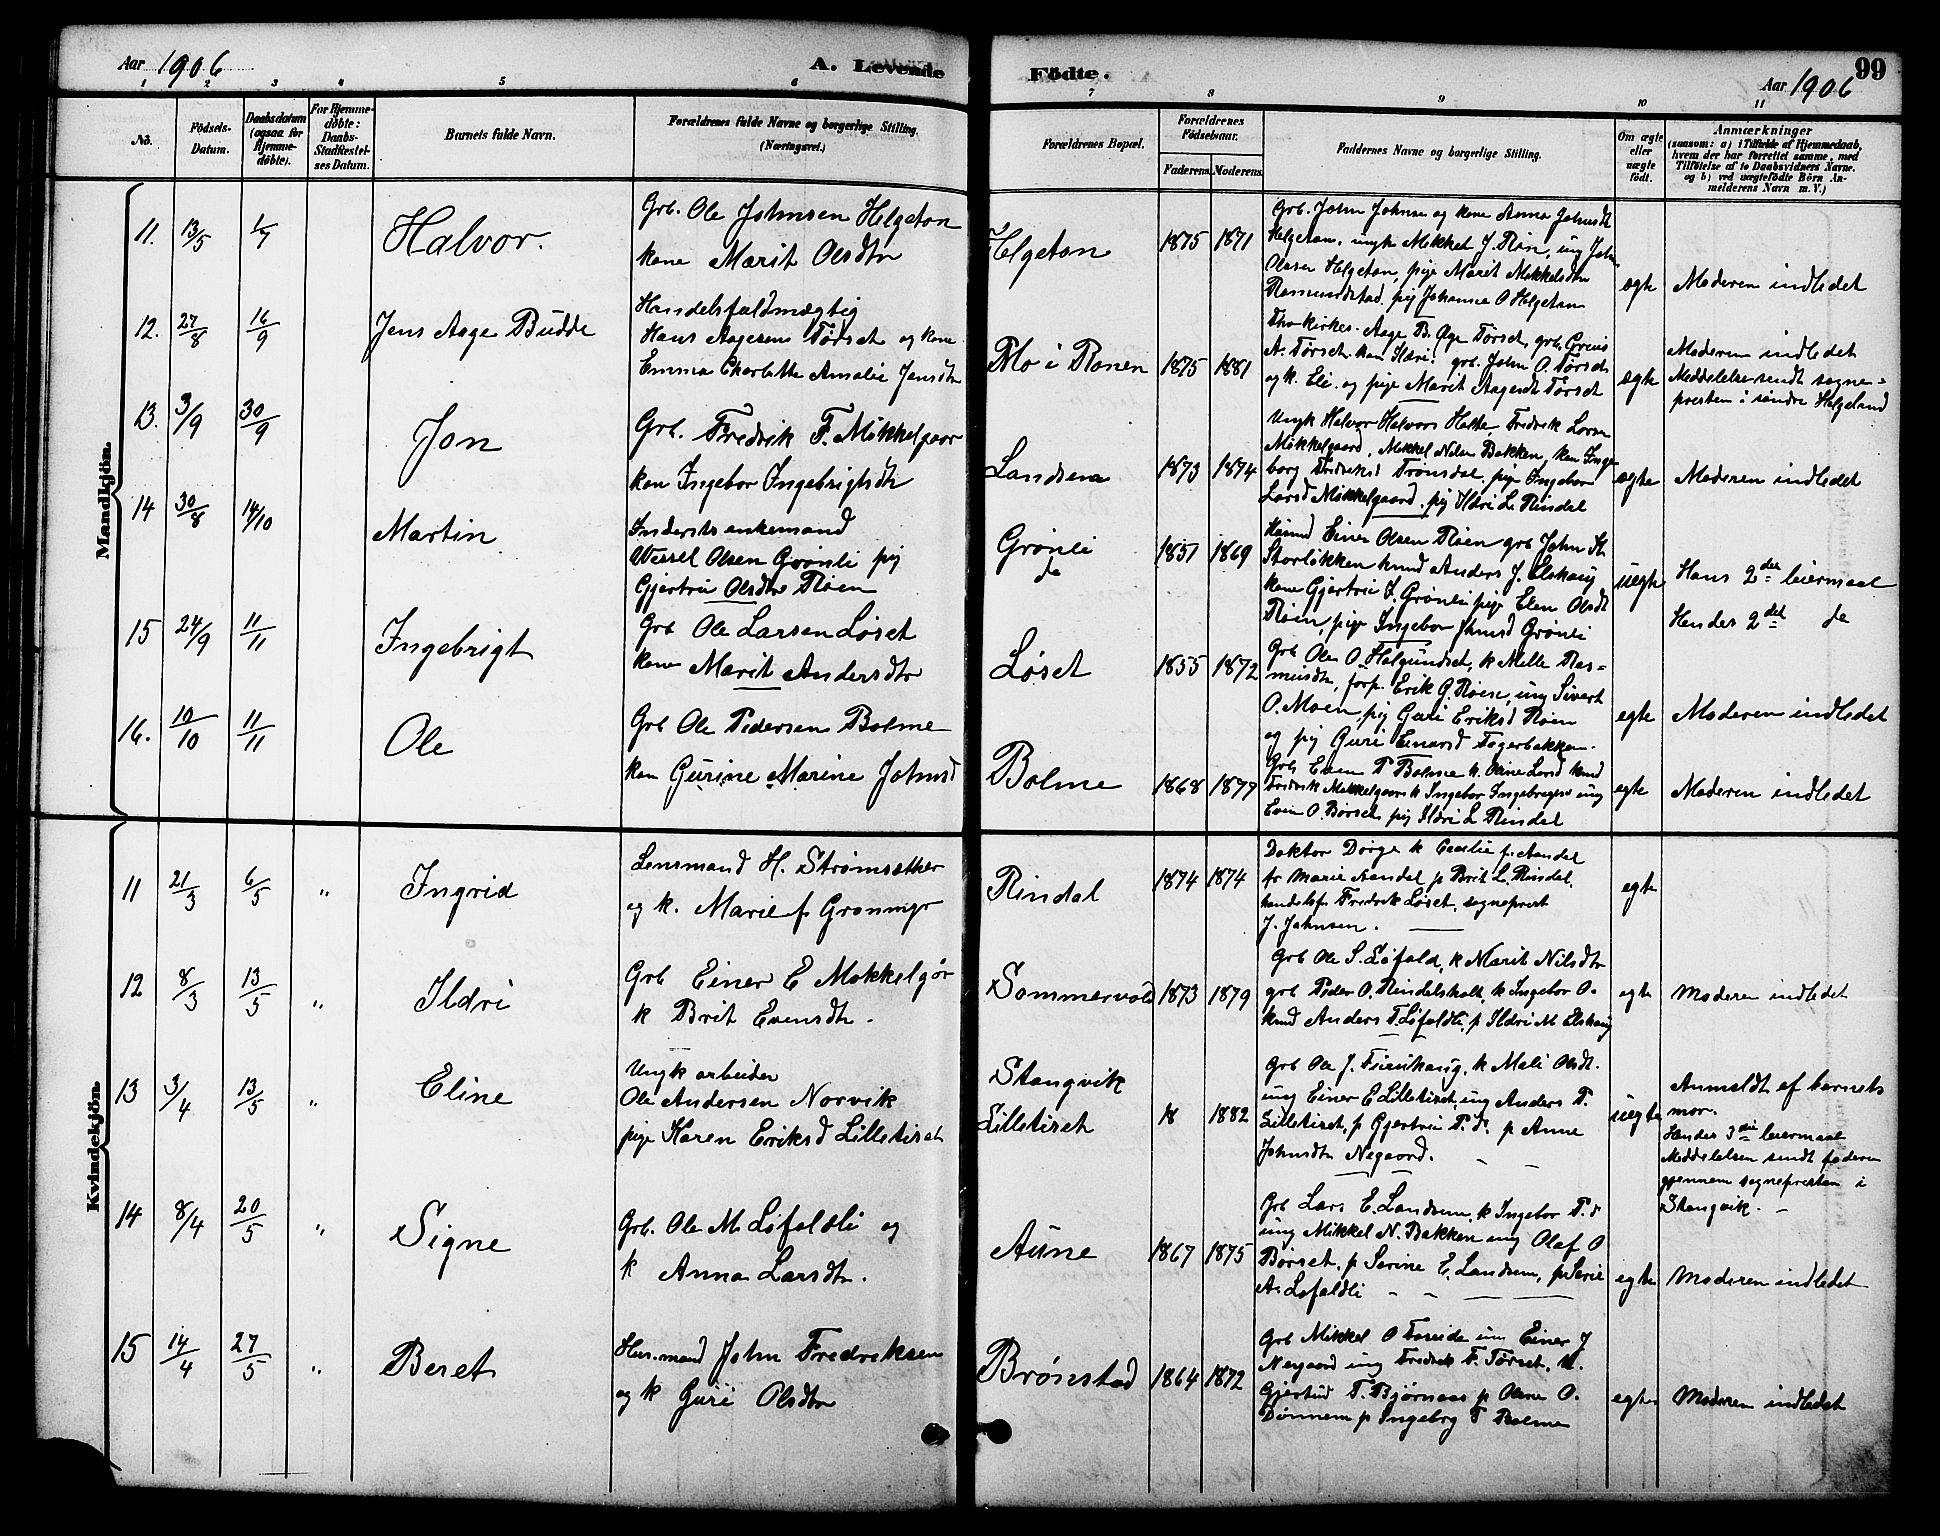 Aar 1906
A. Levende Födte.
99
Aar 1906
1 2 3 4 5 6 7 8 9 10 11
No.
Födsels-Datum.
Daabsdatum (ogsaa for Hjemme-döbte).
For Hjemme-döbte: Daabs-Stadfæstel-ses Datum.
Barnets fulde Navn.
Forældrenes fulde Navne og borgerlige Stilling. (Næringsvei.)
Forældrenes Bopæl.
Forældrenes Födselsaar.
Faderens. Moderens.
Faddernes Navne og borgerlige Stilling.
Om ægte eller uægte födt.
Anmærkninger
(saasom: a) i Tilfælde af Hjemmedaab,
hvem der har forrettet samme, med
Tilföielse af to Daabsvidners Navne.
og b) ved uægtefödte Börn An-
melderens Navn m. V.)
Mandkjön.
11. 13/5 1/7 Halvor.
Grb. Ole Johnsen Helgeton
kone Marit Olsdtr
Helgeton 1875 1871
Grb. John Johnsen og kone Anna Johnsdt
Helgeton, ungk Mikkel J. Røen, ung John
Olssen Helgeton, pige Marit Mikkelsdtr
Rasmundstad. pig Johanna O Helgeton
ægte Moderen indledet
12. 27/8 16/9 Jens Aage Budde
Handelsfuldmægtig
Hans Aagesens Tørset og kone
Emma Charlotte Amalie Jensdtr
Mo i Ranen 1875 1881
Aage Tørset, grb.
A. Tørset kon Ildri. grb. John O. Tørset
og k. Eli. og pige Marit Aagesdt Tørset
ægte Moderen indledet
Meddelelse sendt sogne=
presten i søndre Helgeland
13. 3/9 30/9 Jon
Grb. Fredrik F. Mikkelgaar
kon Ingebor Ingebrigtsdtr
Landsem 1873 1874
Ungk Halvor Halvors Holte, Fredrik Larsen
Mikkelgaard, Mikkel Nilsen Bakken, kon Inge
borg Fredriksd Tronsdal, pige Ingebor
Larsd Mikkelgaard. pig Ildri L. Rindal
ægte Moderen indledet
14 30/8 14/10 Martin
Inderst enkemand
Wessel Olsen Grønli pig
Gjertru Olsdtr Røen
Grønli
do 1851 1869
Husmd Einer Olsen Røen grb John
Storløkken kmd Anders J. Elshaug
kone Gjertru J. Grønli pige Elen Olsdt
Røen, pige Ingebor Grønli
uegte Hans 2det leiermaal
Hendes 2det do
15 24/9 11/11 Ingebrigt
Grb Ole Larsen Løset
kone Marit Andersdtr
Løset 1855 1872
Grb Ole O. Halgundset, k Melle Ras=
musdtr, forp. Erik G. Røen, ung Sivert
O. Moen, pig Guri Eriksd Røen
og pig Guri Einarsd Fagerbakken.
egte Moderen indledet
16. 10/10 11/11 Ole
Grb Ole Pedersen Bolme
kon Gurine Marine Johnsd
Bolme 1868 1877
Grb Even P Bolme k. Oline Larsd kmd
Fredrik Mikkelgaard k Ingebor Ingebrigtsd ung
Even O. Børset, pig Ildri L Rindal
egte Moderen indledet
Kvindekjön.
11 21/3 6/5 " Ingrid
Lensmand H. Strømsether
og k. Marie f. Grønnings
Rindal 1874 1874
Doktor Dørge k Cecilie f. Aandal
fr Marie Aandal p Brit L. Rindal,
handelsf. Fredrik Løset, sogneprest
J. Johnsen.
egte
12 8/3 13/5 " Ildri
Grb Einer E Mokkelgør
k Brit Evensdtr.
Sommervold 1873 1879
Grb Ole S. Løfald, k Marit Nilsdtr
grb Peder O. Rindalsholt, k Ingebor O.
kmd Anders T. Løfaldli, p Ildri M Elshaug
egte Moderen indledet
13 3/4 13/5 " Eline
Ungk arbeider
Ole Andersen Norvik
pige Karen Eriksd Lilletiset
Stangvik
Lilletiset 18 1882
Grb Ole J. Furuhaug, k Mali Olsdt.
ung Einer E Lilletiset, ung Anders T.
Lilletiset, p Gjertru T.d. p Anne
Johnsdtr Negaard.
uegte Anmeldt af barnets
mor.
Hendes 3die leiermaal
Meddelelsen sendt faderen
gjennem sognepresten i
Stangvik.
14 8/4 20/5 " Signe
Grb. Ole M Løfaldli og
k Anna Larsdtr.
Aune 1867 1875
Grb Lars E. Landsem, k Ingebor T.d
ung Mikkel N. Bakken ung Olaf O
Børset, p Serine E. Landsem, p Serie
A. Løfaldli
egte Moderen indledet
15 14/4 27/5 " Beret
Husmand John Fredriksen
og k Guri Olsdtr
Brønstad 1864 1872
Grb Mikkel O Torvide ung Einer J
Negaard ung Fredrik F. Tørset, k.
Gjertrud T. Bjørnaas p Oline O.
Dønnem p Ingebrg T Bolme
egte Moderen indledet